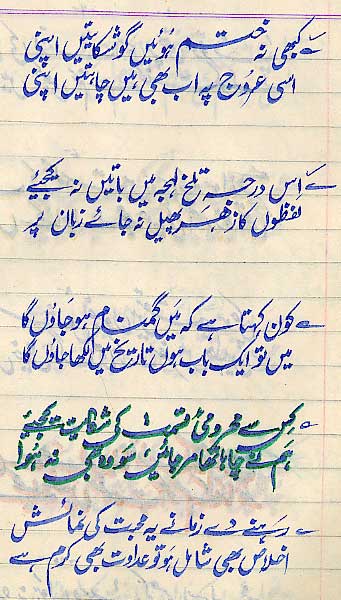 کبھی نہ ختم ہوئیں گو شکایتیں اپنی
اسی عروج پہ اب بھی ہیں چاہتیں اپنی
اِس درجہ تلخ لہجہ میں باتیں نہ کیجئے
لفظوں کا زہر پھیل نہ جائے زبان پر
کون کہتا ہے کہ میں گمنام ہو جاؤں گا
میں تو ایک باب ہوں تاریخ میں لکھا جاؤں گا
کس سے محرومیٔ قسمت کی شکایت کیجئے
ہم نے چاہا تھا مر جائیں سو وہ بھی نہ ہوا
رہنے دے زمانے یہ محبت کی نمائش
اخلاص بھی شامل ہو تو عداوت بھی کرم ہے